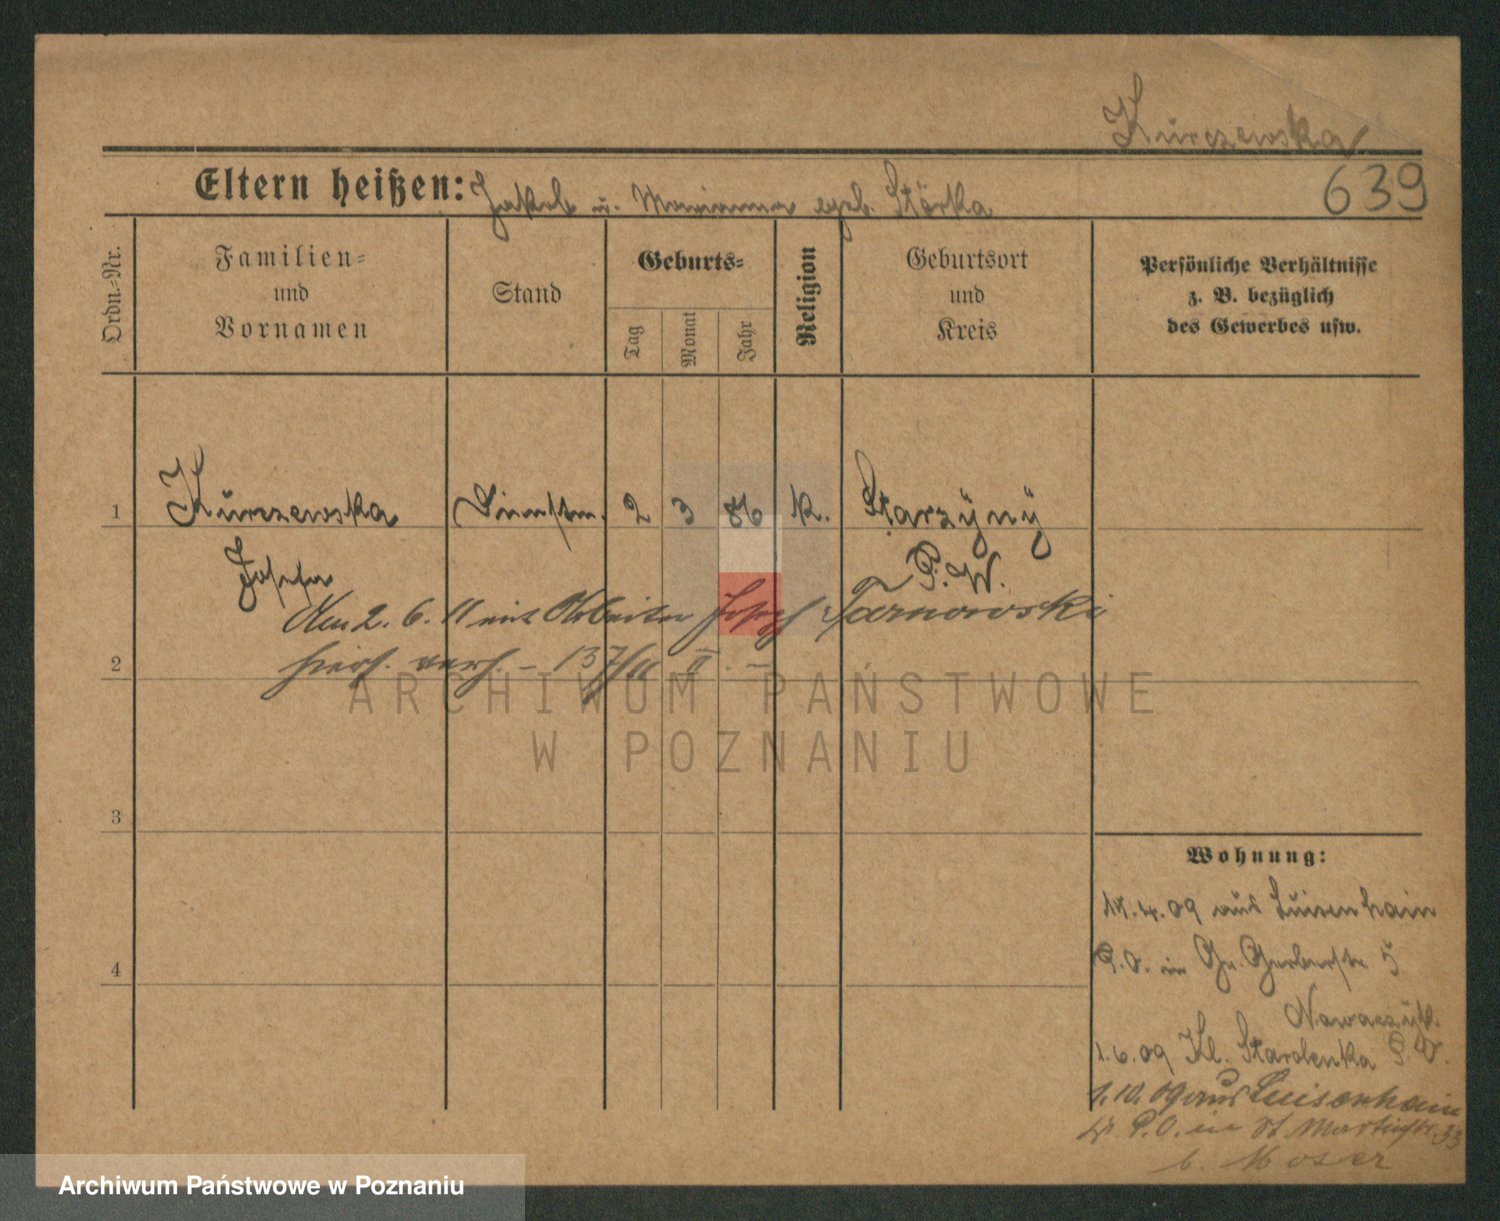 Kurczewska
Eltern heißen: Jakob u. Marianna geb. Störka
639
Ordn.-Nr.
Familien- und Vornamen
Stand
Geburts-
Tag
Monat
Jahr
Religion
Geburtsort und Kreis
Persönliche Verhältnisse
z. B. bezüglich
des Gewerbes usw.
1 Kurczewska Dienstm. 2 3 86 K. Starzÿnÿ
Josefa P. W.
Am 2. 6. 11 mit Arbeiter Josef Tarnowski
2 hier verh. – 137/11 II. –
ARCHIWUM PAŃSTWOWE
W POZNANIU
3
Wohnung:
4
4.09 aus Luisenhain
P.O. in Gr. Gerberstr 5
Nowaczÿk.
1.6.09 Kl. Starolenka P.O.
1.10.09 aus Luisenhain
P.O. in St. Martinstr. 33
b. Moser
Archiwum Państwowe w Poznaniu